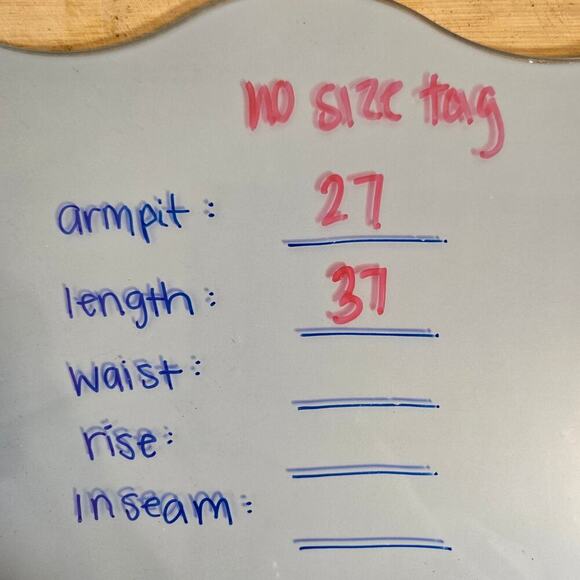 no size tag
armpit: 27
length: 37
waist:
rise:
inseam: